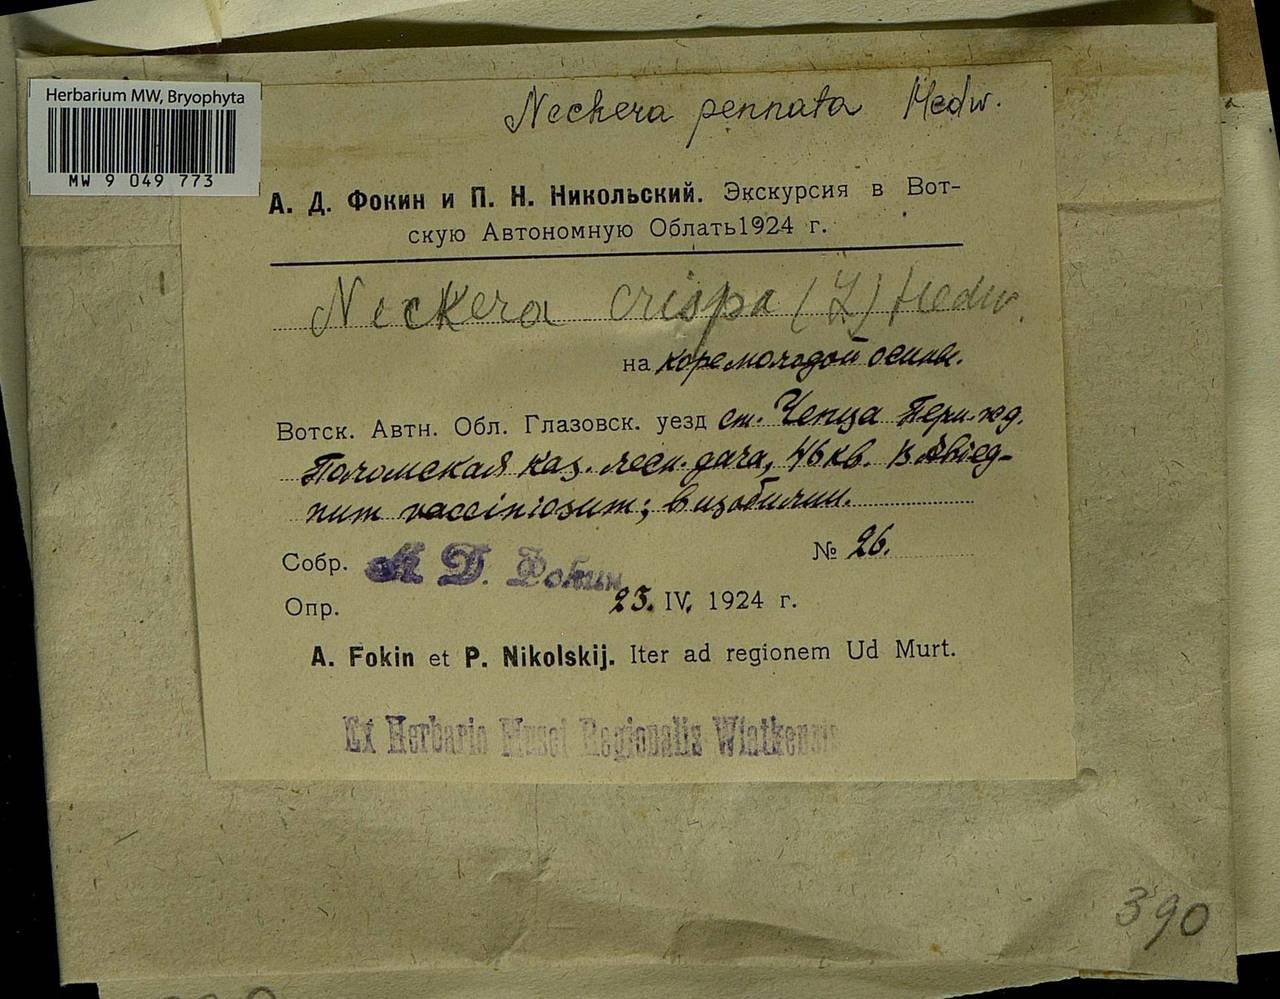 Herbarium MW, Bryophyta
MW 9 049 773
Neckera pennata Hedw.
А. Д. Фокин и П. Н. Никольский. Экскурсия в Вот-
скую Автономную Облать1924 г.
Neckera crispa (L) Hedw.
на коре молодой осины.
Вотск. Автн. Обл. Глазовск. уезд ст. Чепца Перм. жд.
Поломская каз. лесн. дача, 46 кв. В Abieg-
num vacciniosum; в изобилии.
Собр. А Д. Фокин
№ 26.
Опр.
23. IV. 1924 г.
A. Fokin et P. Nikolskij. Iter ad regionem Ud Murt.
Ex Herbario Musei Regionalis Wiatkensis
390